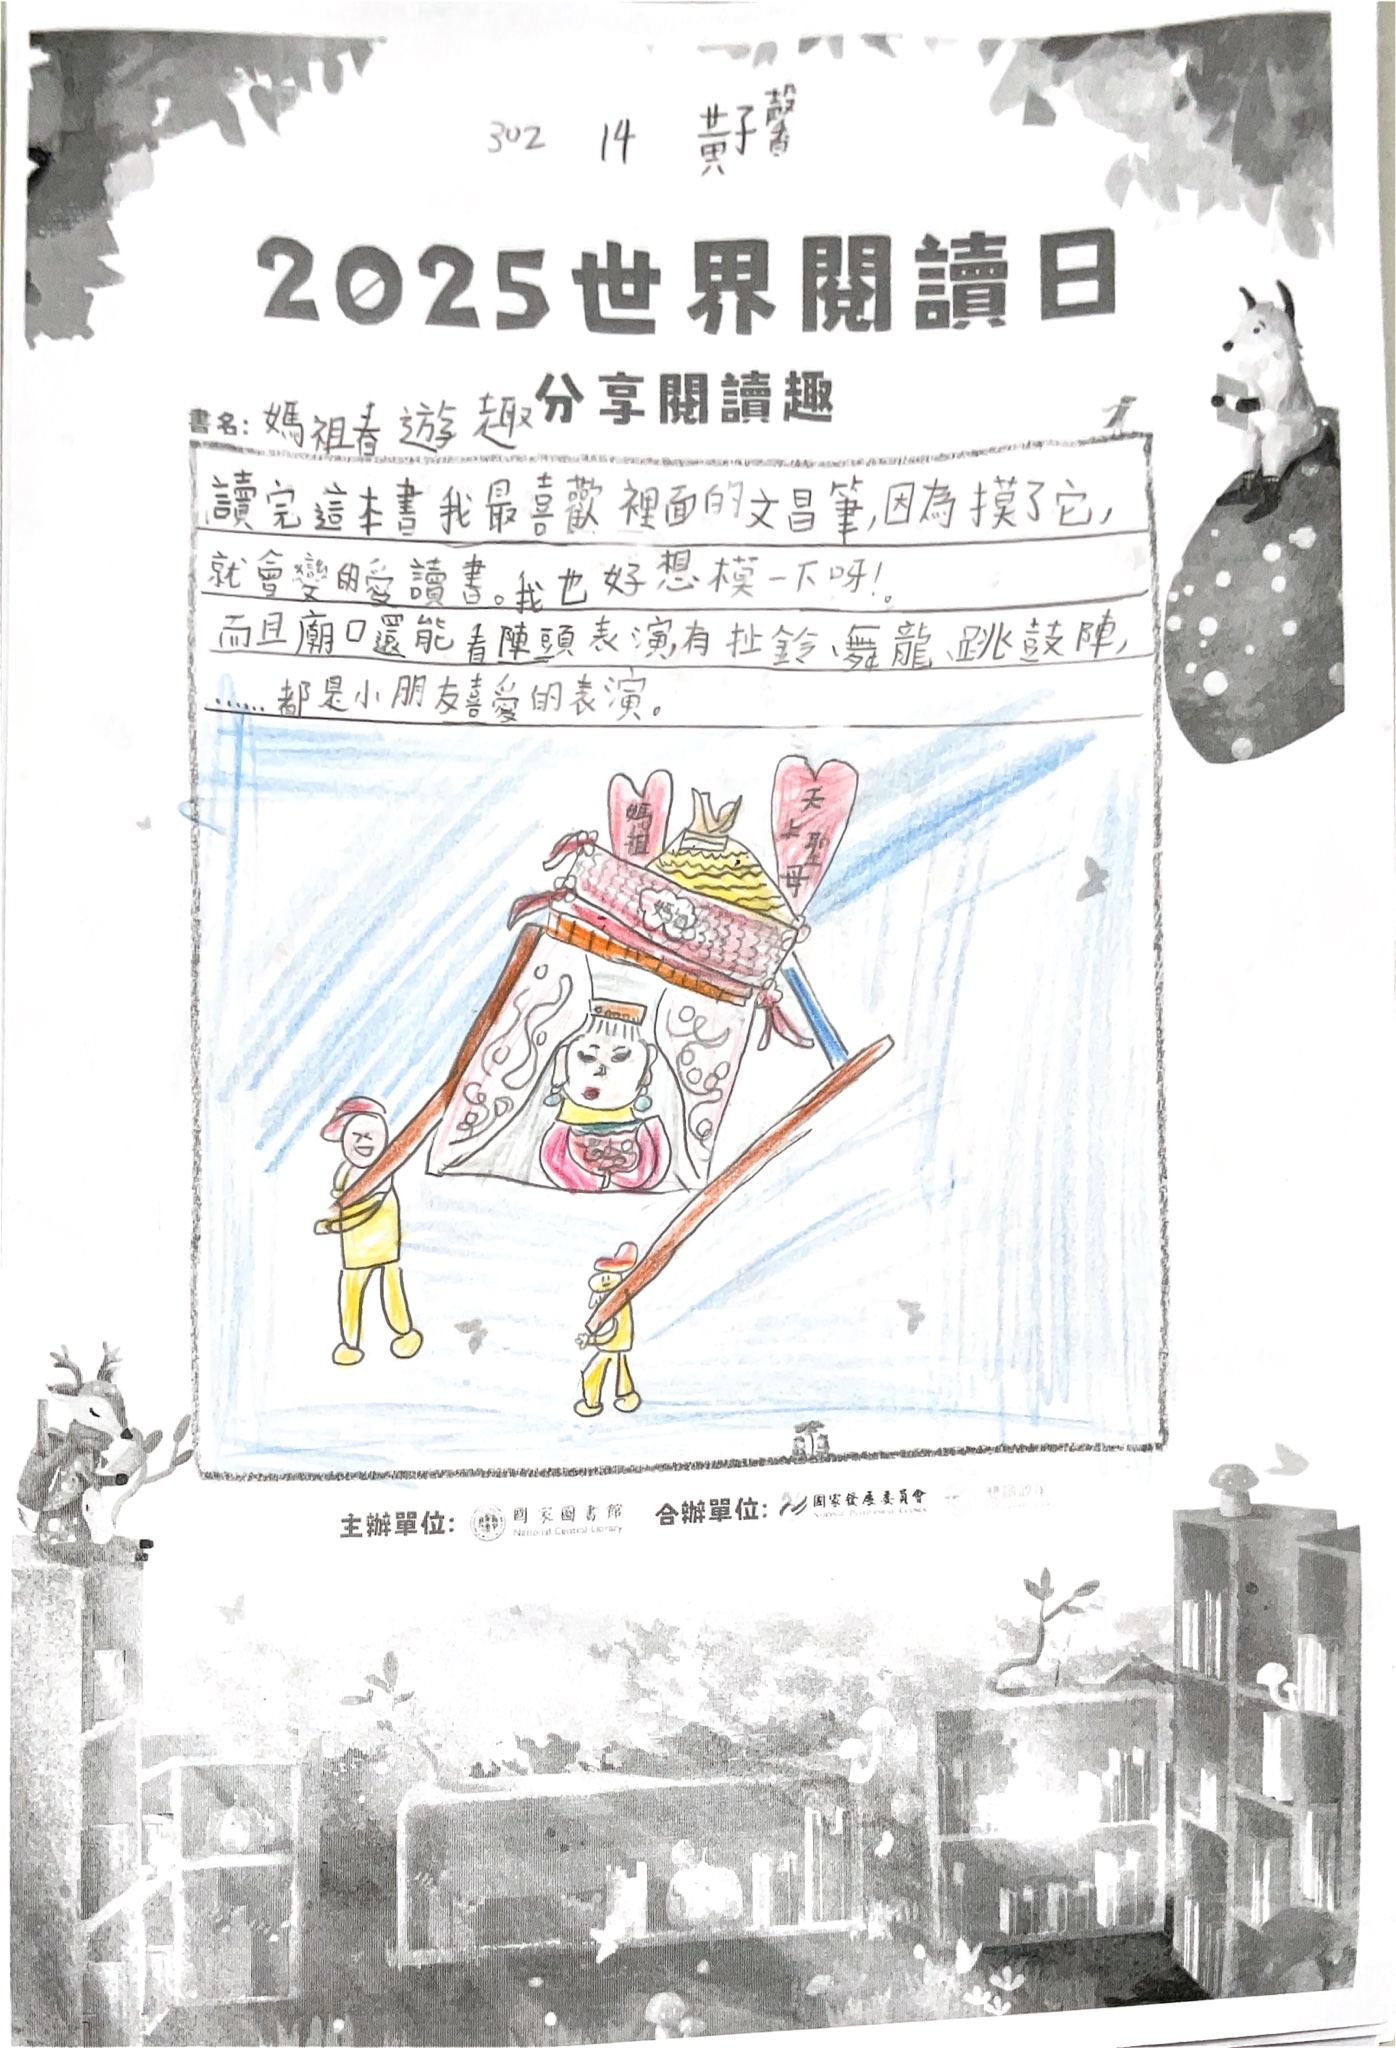 302 14 黃子馨
2025世界閱讀日
分享閱讀趣
書名：媽祖春遊趣
讀完這本書我最喜歡裡面的文昌筆，因為摸了它，
就會變的愛讀書。我也好想模一下呀！。
而且廟口還能看陣頭表演，有扯鈴、舞龍、跳鼓陣，
……都是小朋友喜愛的表演。
媽祖
天上聖母
媽祖
主辦單位： 國家圖書館 National Central Library 合辦單位： 國家發展委員會